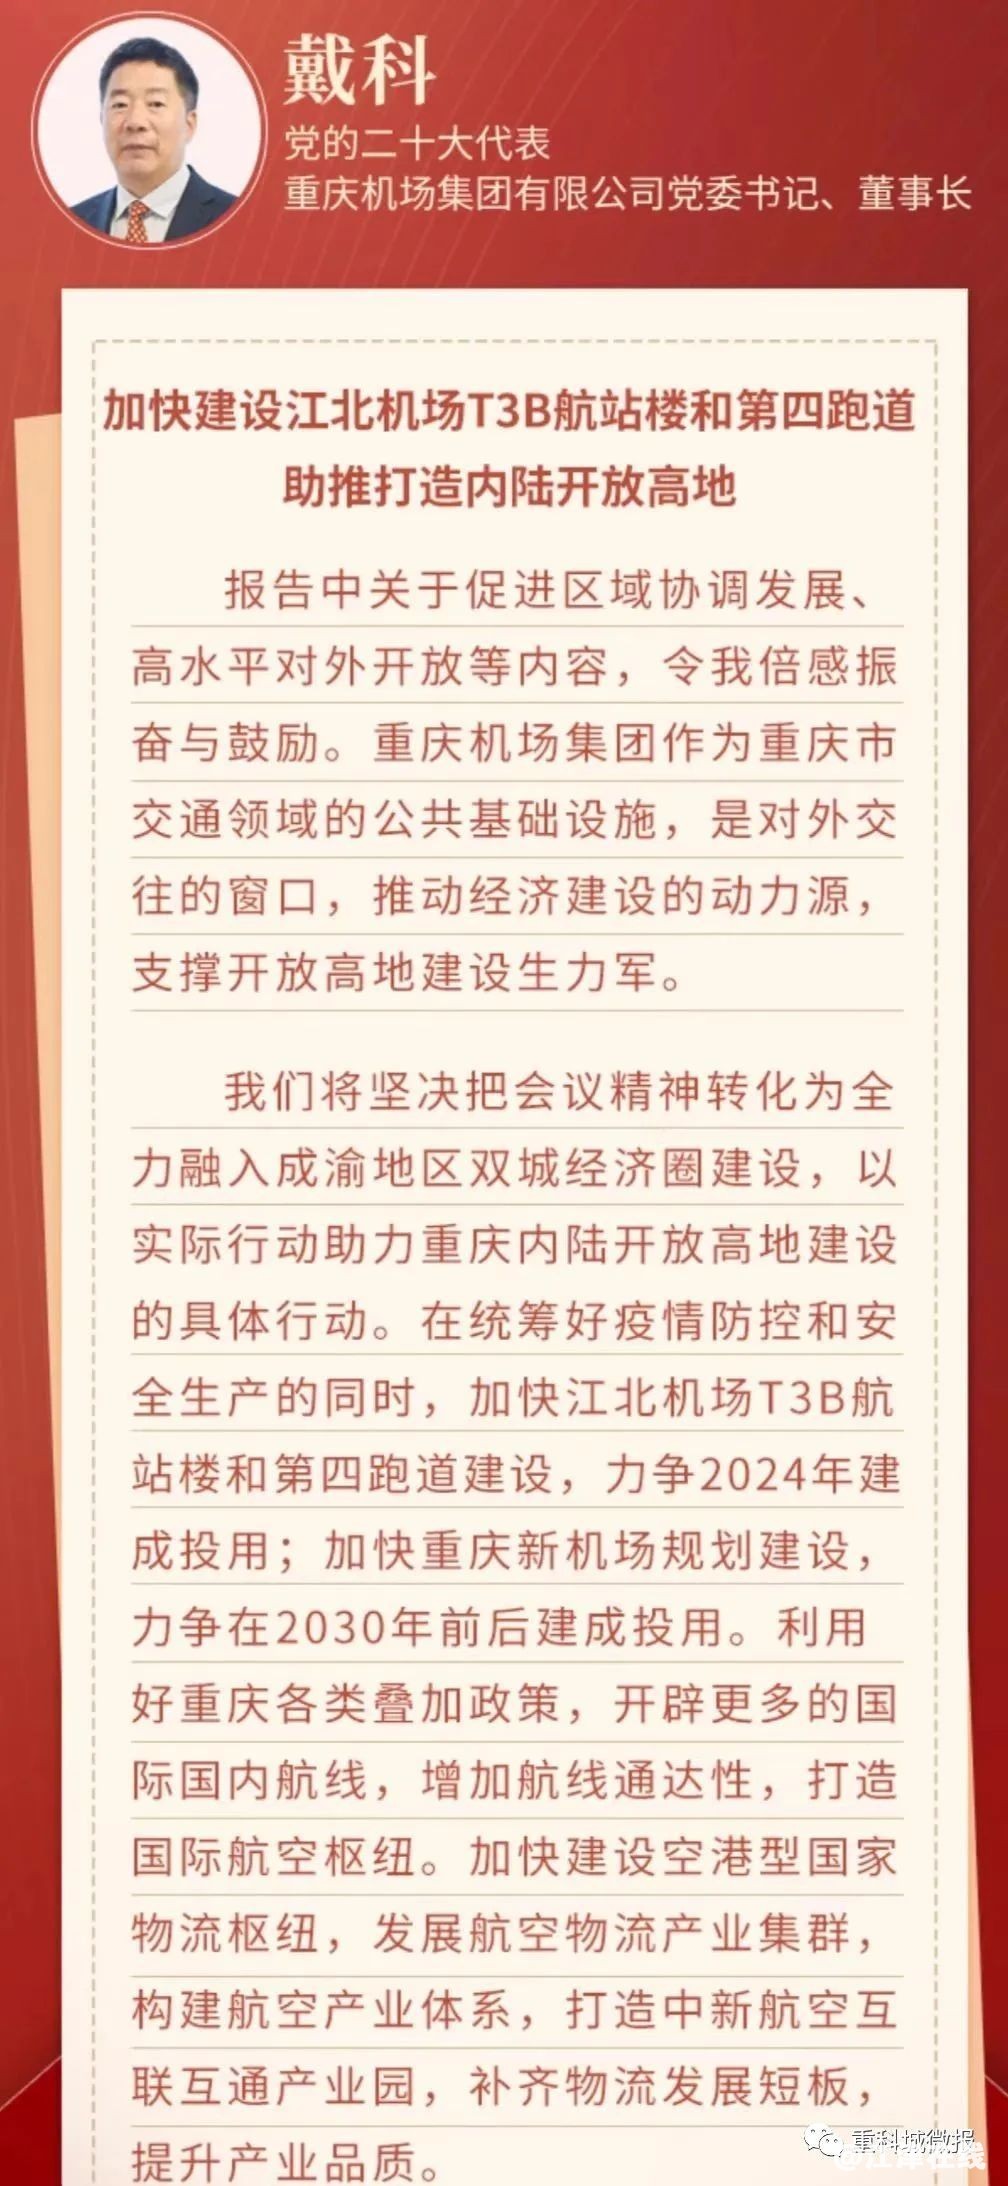 戴科
党的二十大代表
重庆机场集团有限公司党委书记、董事长
加快建设江北机场T3B航站楼和第四跑道
助推打造内陆开放高地
报告中关于促进区域协调发展、
高水平对外开放等内容，令我倍感振
奋与鼓励。重庆机场集团作为重庆市
交通领域的公共基础设施，是对外交
往的窗口，推动经济建设的动力源，
支撑开放高地建设生力军。
我们将坚决把会议精神转化为全
力融入成渝地区双城经济圈建设，以
实际行动助力重庆内陆开放高地建设
的具体行动。在统筹好疫情防控和安
全生产的同时，加快江北机场T3B航
站楼和第四跑道建设，力争2024年建
成投用；加快重庆新机场规划建设，
力争在2030年前后建成投用。利用
好重庆各类叠加政策，开辟更多的国
际国内航线，增加航线通达性，打造
国际航空枢纽。加快建设空港型国家
物流枢纽，发展航空物流产业集群，
构建航空产业体系，打造中新航空互
联互通产业园，补齐物流发展短板，
提升产业品质。
重科城微报
@江津在线